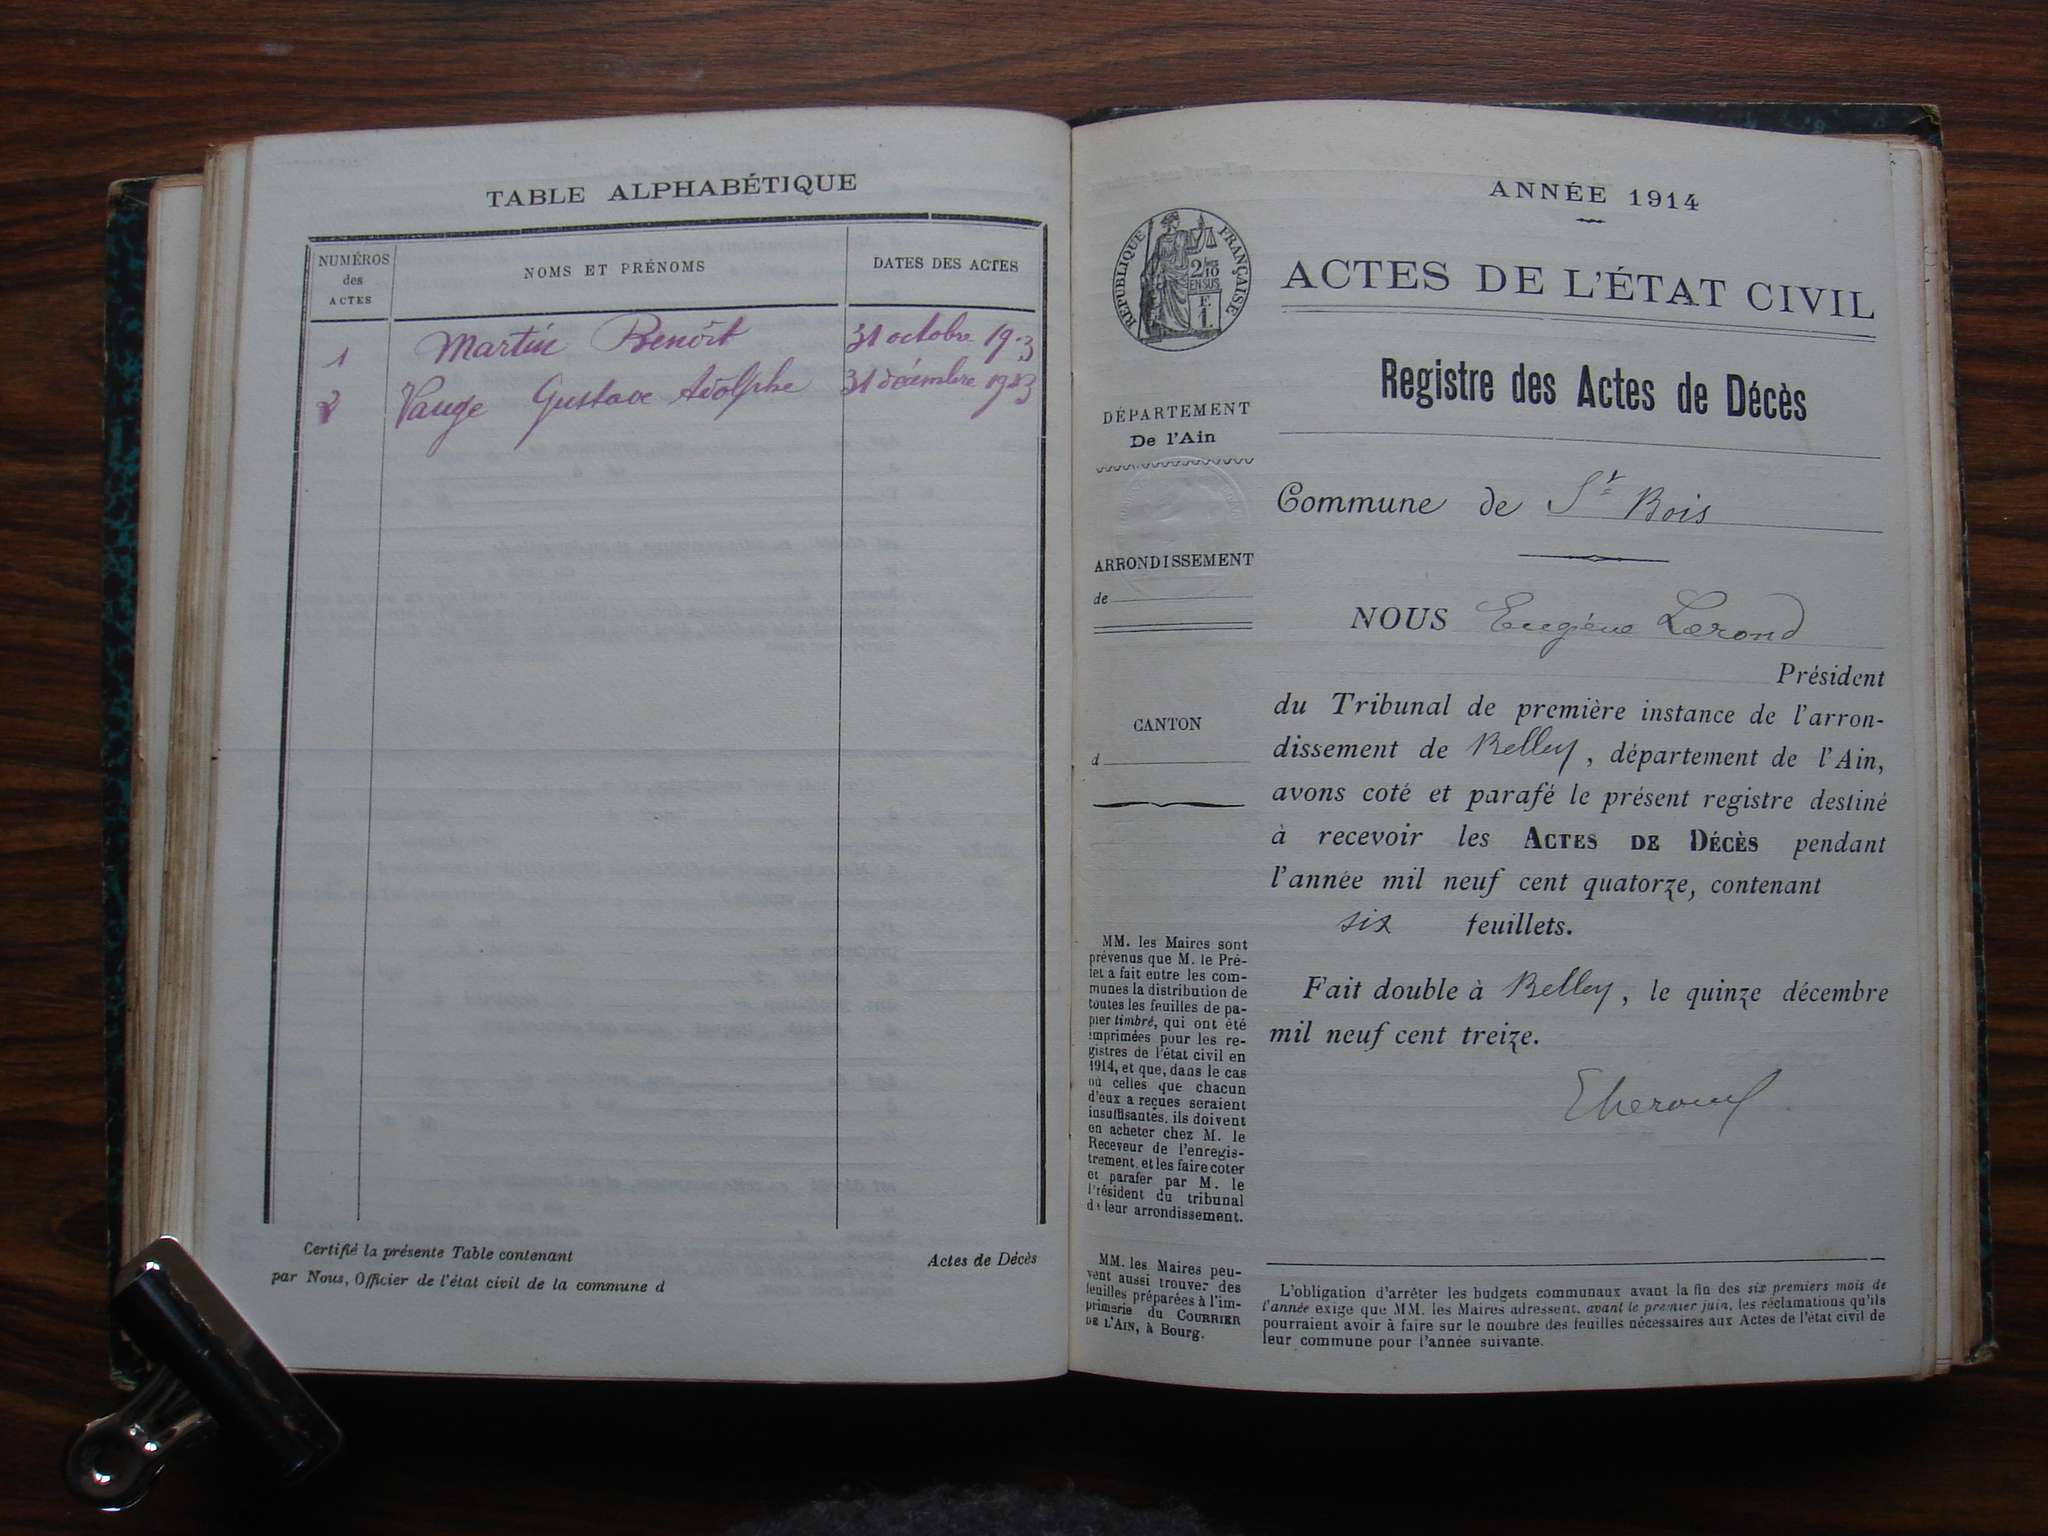 TABLE ALPHABÉTIQUE
NUMÉROS
des
ACTES
NOMS ET PRÉNOMS
DATES DES ACTES
1 Martin Benoît 31 octobre 1913
2 Vauge Gustave Adolphe 31 décembre 1913
Certifié la présente Table contenant Actes de Décès
par Nous, Officier de l'état civil de la commune d
ANNÉE 1914
RÉPUBLIQUE FRANÇAISE
2/10
EN SUS
F.
1.
ACTES DE L'ÉTAT CIVIL
Registre des Actes de Décès
DÉPARTEMENT
De l'Ain
ARRONDISSEMENT
de
CANTON
d
MM. les Maires sont
prévenus que M. le Pré-
fet a fait entre les com-
munes la distribution de
toutes les feuilles de pa-
pier timbré, qui ont été
imprimées pour les re-
gistres de l'état civil en
1914, et que, dans le cas
où celles que chacun
d'eux a reçues seraient
insuffisantes, ils doivent
en acheter chez M. le
Receveur de l'enregis-
trement, et les faire coter
et parafer par M. le
Président du tribunal
de leur arrondissement.
MM. les Maires peu-
vent aussi trouver des
feuilles préparées à l'im-
primerie du COURRIER
DE L'AIN, à Bourg.
Commune de St Bois
NOUS Eugène Lerond
Président
du Tribunal de première instance de l'arron-
dissement de Belley, département de l'Ain,
avons coté et parafé le présent registre destiné
à recevoir les ACTES DE DÉCÈS pendant
l'année mil neuf cent quatorze, contenant
six feuillets.
Fait double à Belley, le quinze décembre
mil neuf cent treize.
L'obligation d'arrêter les budgets communaux avant la fin des six premiers mois de
l'année exige que MM. les Maires adressent, avant le premier juin, les réclamations qu'ils
pourraient avoir à faire sur le nombre des feuilles nécessaires aux Actes de l'état civil de
leur commune pour l'année suivante.